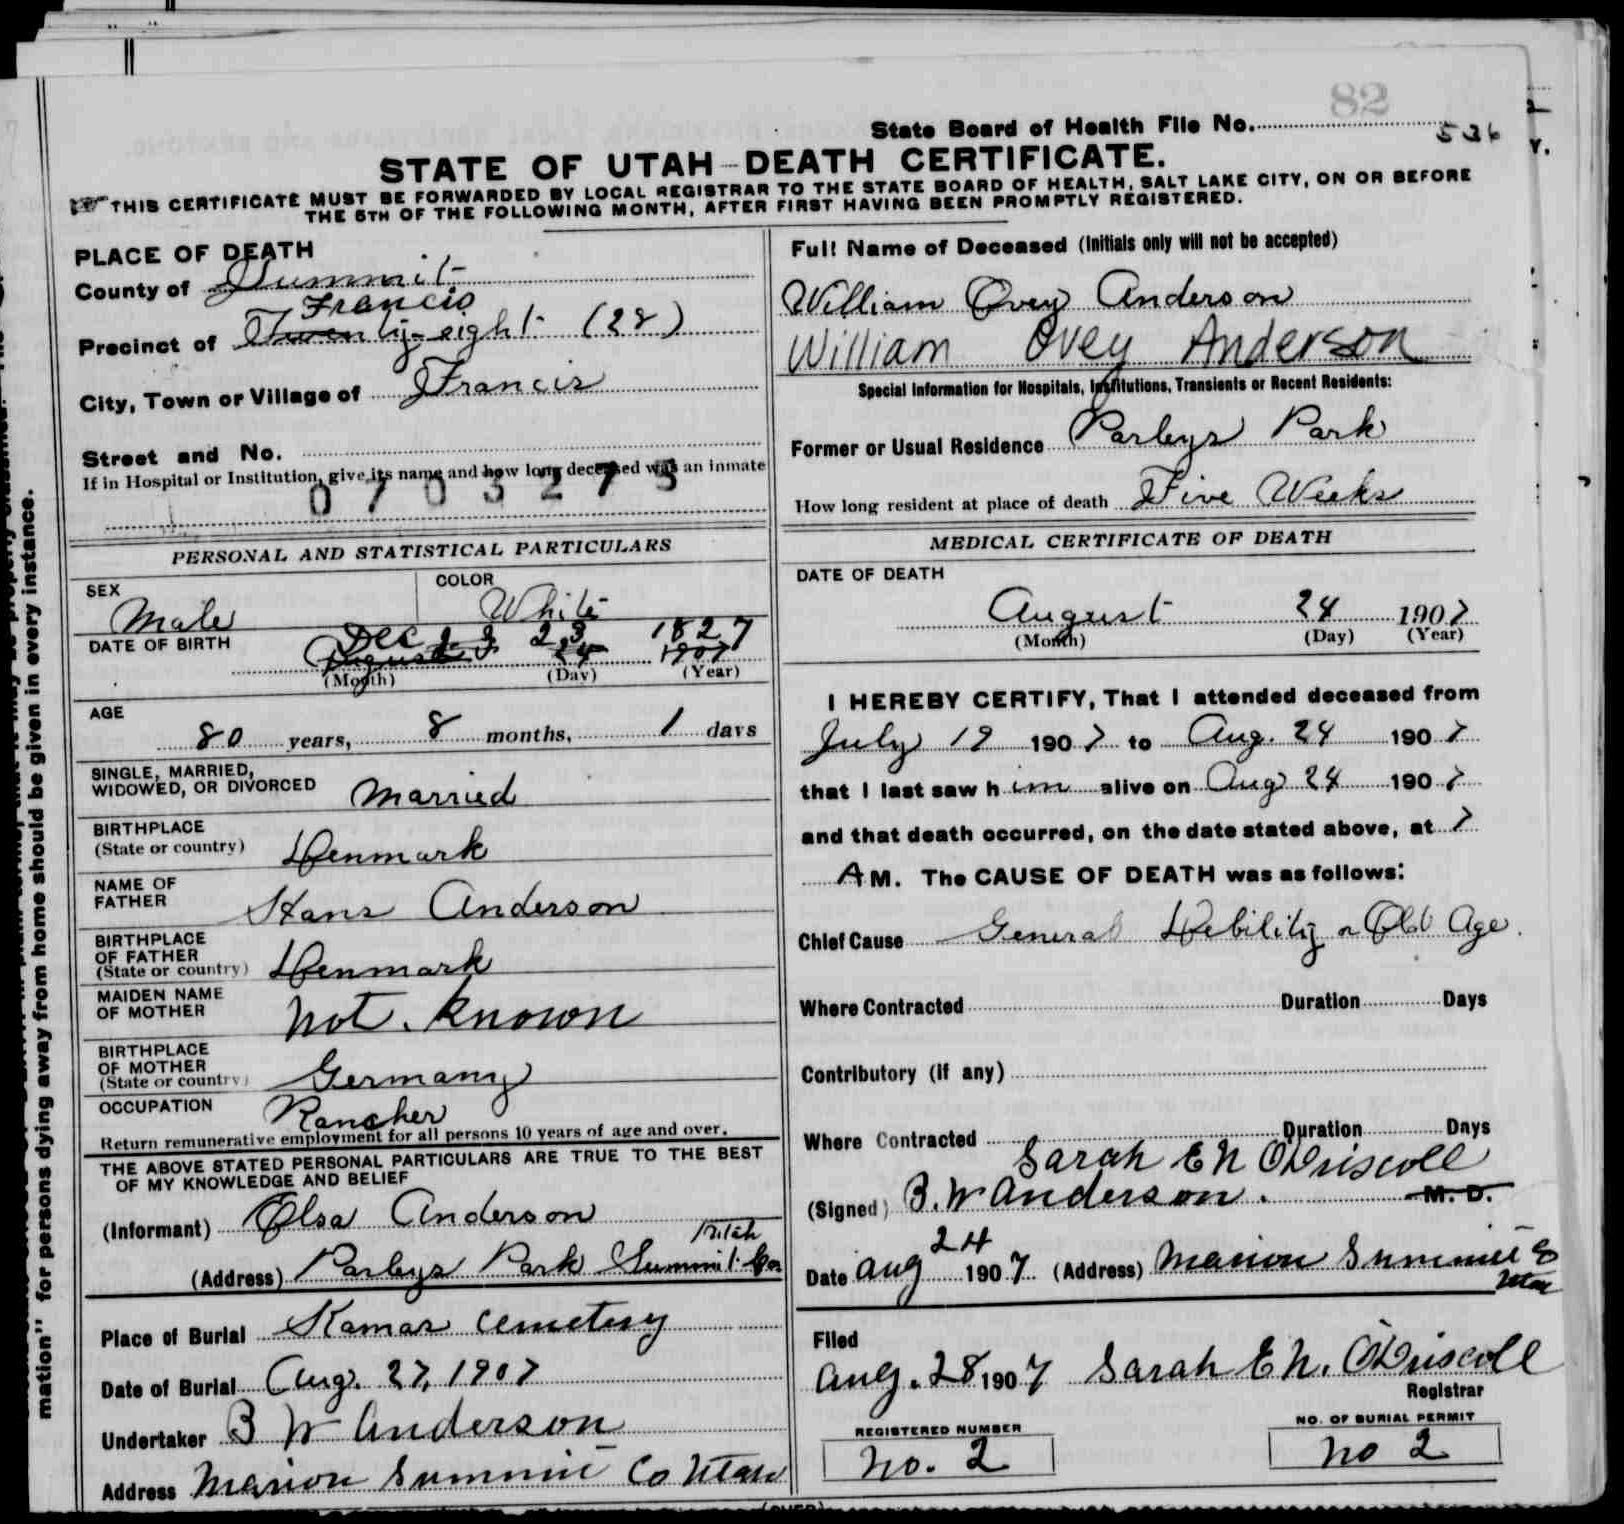 82
State Board of Health File No. 536
STATE OF UTAH—DEATH CERTIFICATE.
THIS CERTIFICATE MUST BE FORWARDED BY LOCAL REGISTRAR TO THE STATE BOARD OF HEALTH, SALT LAKE CITY, ON OR BEFORE
THE 5TH OF THE FOLLOWING MONTH, AFTER FIRST HAVING BEEN PROMPTLY REGISTERED.
PLACE OF DEATH
County of Summit
Francis
Precinct of Twenty-eight (28)
City, Town or Village of Francis
Street and No.
If in Hospital or Institution, give its name and how long deceased was an inmate
0703275
PERSONAL AND STATISTICAL PARTICULARS
SEX Male
COLOR White
DATE OF BIRTH Dec 23 1827
August 24 1907
(Month) (Day) (Year)
AGE
80 years, 8 months, 1 days
SINGLE, MARRIED,
WIDOWED, OR DIVORCED Married
BIRTHPLACE
(State or country) Denmark
NAME OF
FATHER Hans Anderson
BIRTHPLACE
OF FATHER
(State or country) Denmark
MAIDEN NAME
OF MOTHER not. known
BIRTHPLACE
OF MOTHER
(State or country) Germany
OCCUPATION Rancher
Return remunerative employment for all persons 10 years of age and over.
THE ABOVE STATED PERSONAL PARTICULARS ARE TRUE TO THE BEST
OF MY KNOWLEDGE AND BELIEF
(Informant) Elsa Anderson
Utah
(Address) Parleys Park Summit Co
Place of Burial Kamas Cemetery
Date of Burial Aug. 27, 1907
Undertaker B W Anderson
Address Marion Summit Co Utah
Full Name of Deceased (Initials only will not be accepted)
William Ovey Anderson
William Ovey Anderson
Special Information for Hospitals, Institutions, Transients or Recent Residents:
Former or Usual Residence Parleys Park
How long resident at place of death Five Weeks
MEDICAL CERTIFICATE OF DEATH
DATE OF DEATH
August 24 1907
(Month) (Day) (Year)
I HEREBY CERTIFY, That I attended deceased from
July 19 1907 to Aug. 24 1907
that I last saw him alive on Aug 24 1907
and that death occurred, on the date stated above, at 7
AM. The CAUSE OF DEATH was as follows:
Chief Cause General Debility or Old Age.
Where Contracted Duration Days
Contributory (if any)
Where Contracted Duration Days
Sarah E N O'Driscoll
(Signed) B. W Anderson. M. D.
Date Aug 24 1907 (Address) Marion Summit Co
Utah
Filed
Aug. 28 1907 Sarah E N. O'Driscoll
Registrar
REGISTERED NUMBER
no. 2
NO. OF BURIAL PERMIT
no 2
(OVER)
mation" for persons dying away from home should be given in every instance.